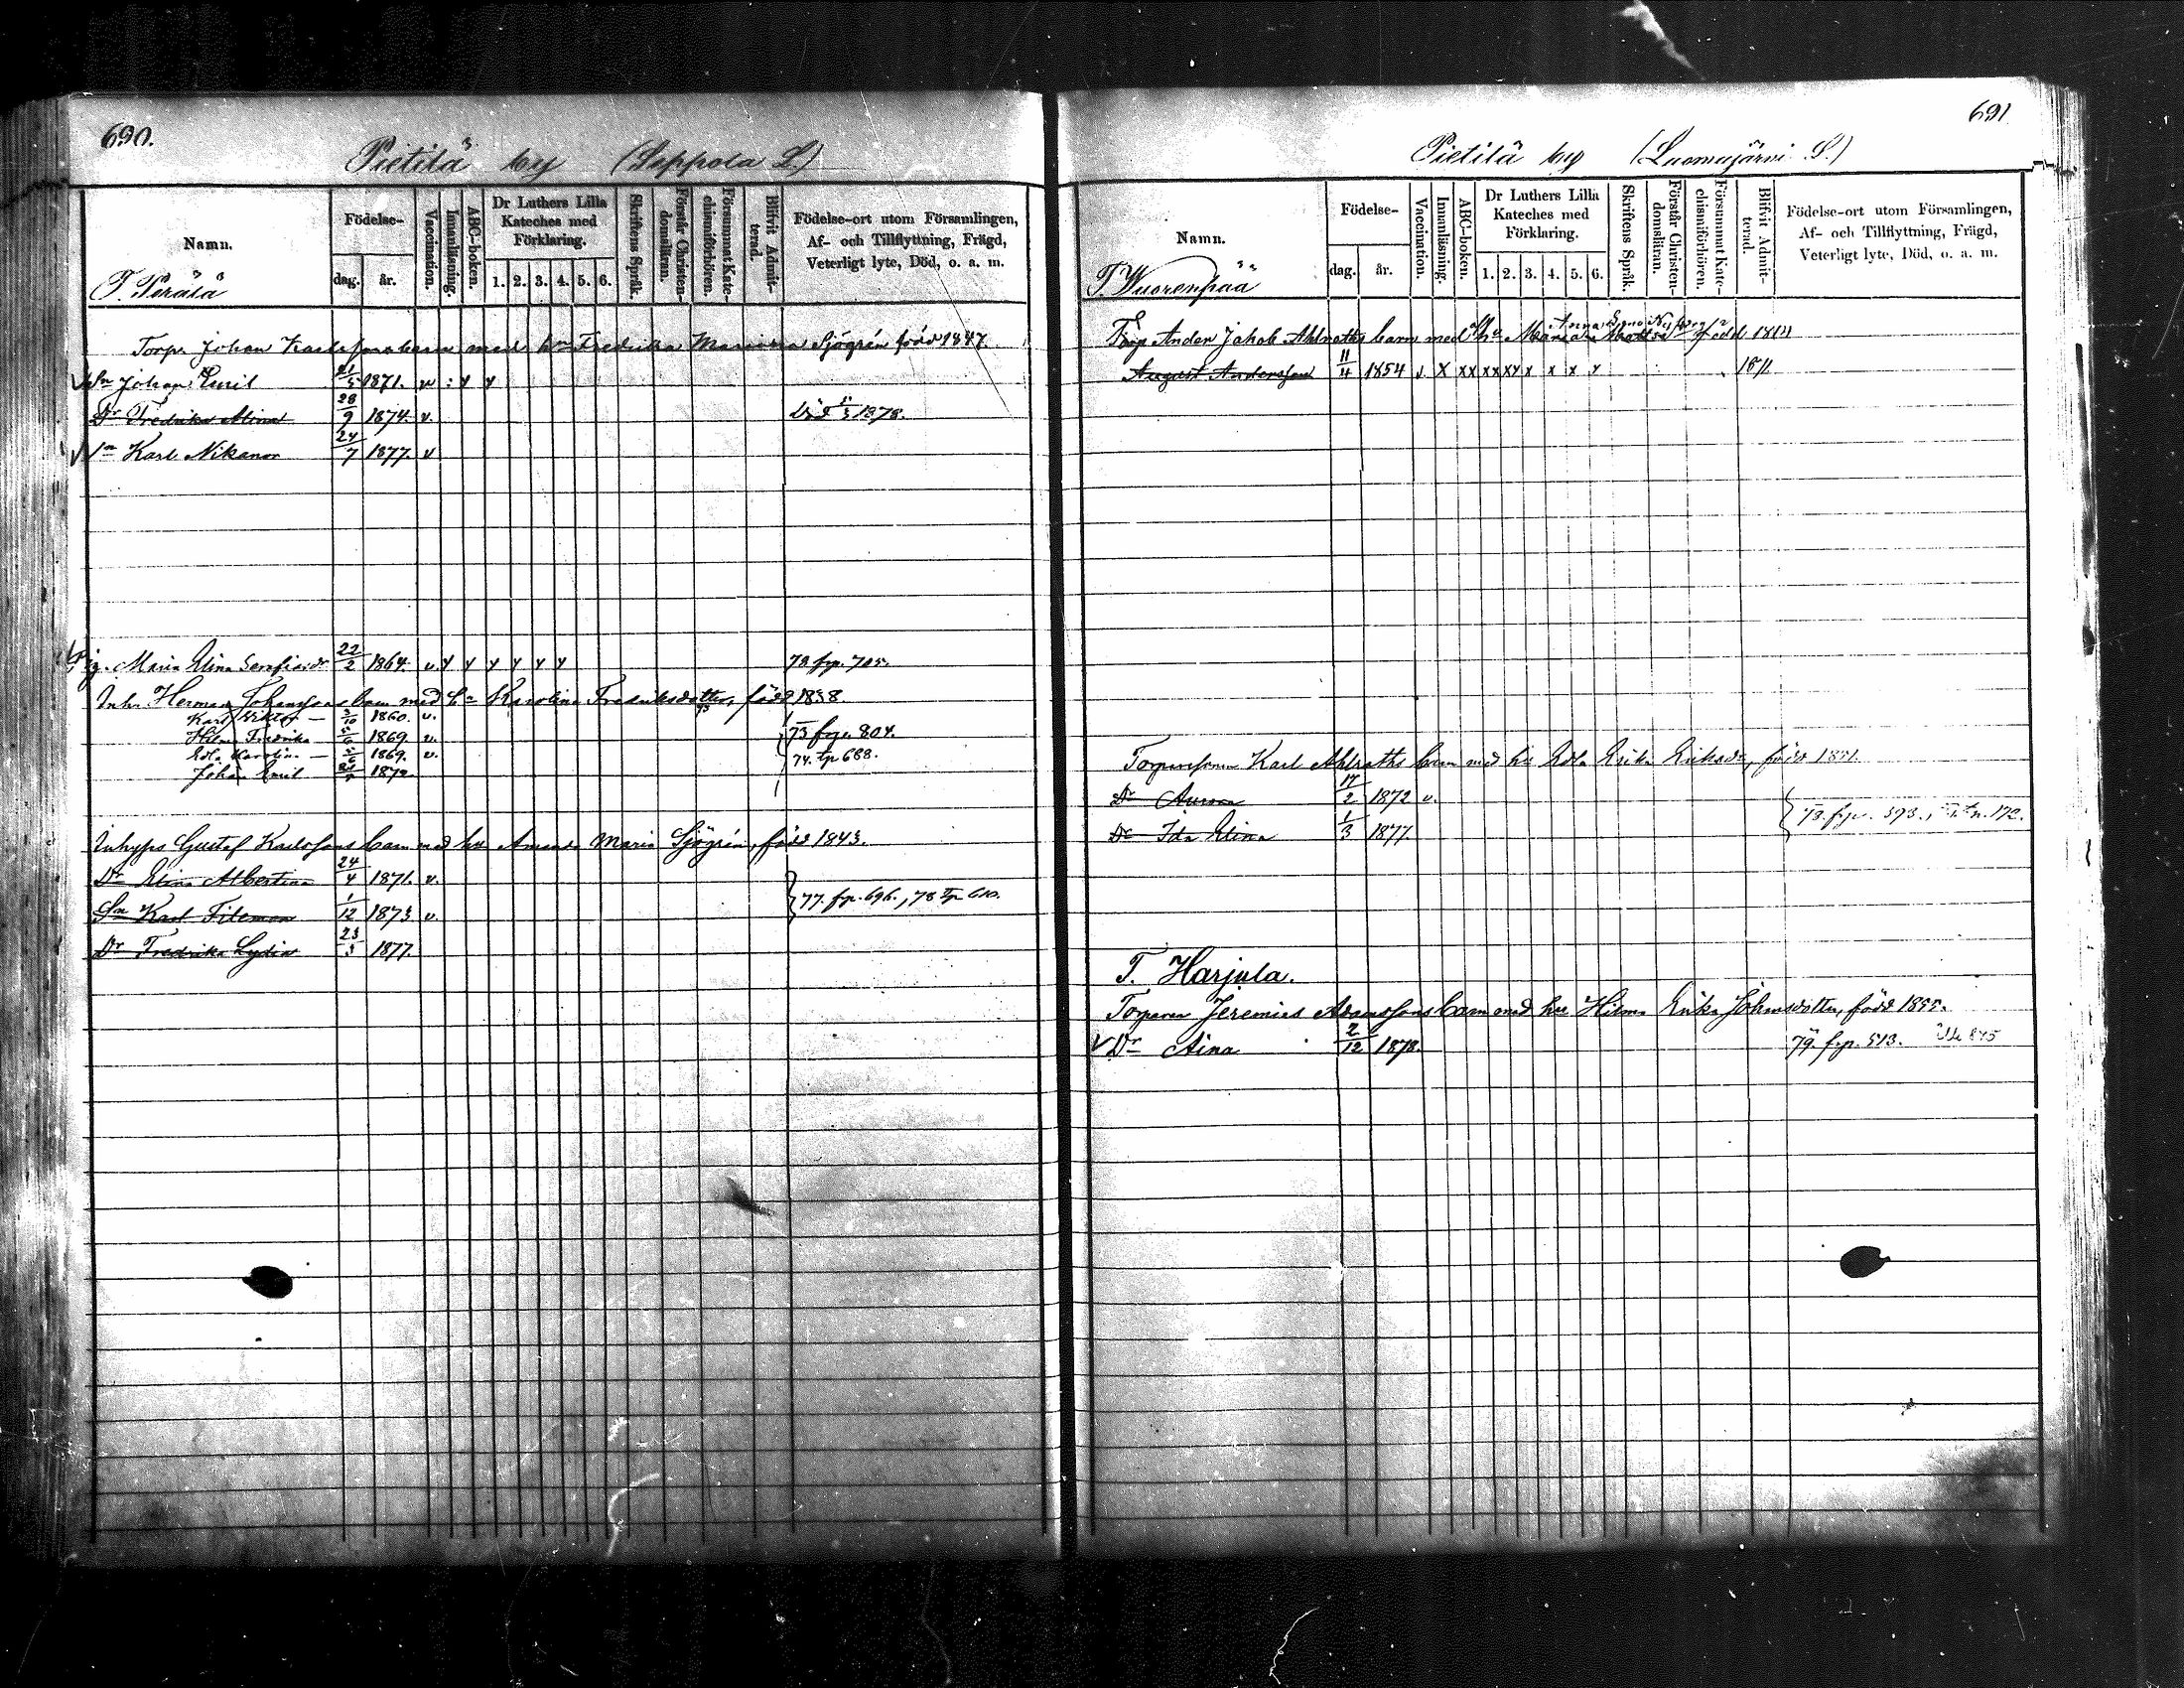 690.
Pietilä by (Seppola L.)
Namn.
Födelse-
dag. år.
Vaccination.
Innanläsning.
ABC-boken.
Dr Luthers Lilla Kateches med Förklaring.
1. 2. 3. 4. 5. 6.
Skriftens Språk.
Förstår Christen-domsläran.
Försummat Kate-chismiförhören.
Blifvit Admit-terad.
Födelse-ort utom Församlingen,
Af- och Tillflyttning, Frägd,
Veterligt lyte, Död, o. a. m.
T. Perälä
Torp. Johan Karlssons barn med hu Fredrika Sjögrén född 1847
v Sn Johan Emil 21/5 1871. v
Dr Fredrika Mina 28/9 1874. v. Död 1878.
v Sn Karl Nikanor 24/7 1877. v
Maria Elina 22/2 1864. v. 78 frp. 705.
Inh. Herman Johanssons barn med hu Karolina Fredriksdotter, född 1838.
Karl Viktor 1860. v.
Hilma Fredrika 1869. v. 73 frp. 804.
Eda Karolina 1869. v. 74. tp 688.
Johan Emil 1872
Inhyses Gustaf Karlssons barn med hu Amanda Maria Sjögrén, född 1843.
Dr Elina Albertina 24/4 1871. v.
Sn Karl Filemon 1/12 1873 v. 77. frp. 696., 78 tp 610.
Dr Fredrika Lydia 23/3 1877.
691
Pietilä by (Luomajärvi L.)
Namn.
Födelse-
dag. år.
Vaccination.
Innanläsning.
ABC-boken.
Dr Luthers Lilla Kateches med Förklaring.
1. 2. 3. 4. 5. 6.
Skriftens Språk.
Förstår Christen-domsläran.
Försummat Kate-chismiförhören.
Blifvit Admit-terad.
Födelse-ort utom Församlingen,
Af- och Tillflyttning, Frägd,
Veterligt lyte, Död, o. a. m.
T. Wuorenpää
Torp Anders Jakob Ahlroths barn med hu Maria född
August Andersson 11/4 1854 v x xx xx xx x x x x 1871.
Torparesonen Karl Ahlroths barn med hu Eda Erika Eriksdr, född 1851.
Dr Aurora 17/2 1872 v.
Dr Ida Elina 1/3 1877 78. frp. 593.
T. Harjula.
Torparen Jeremias Adamssons barn med hu Hilma Erika Johansdotter, född 1855.
v Dr Aina 2/12 1878. 79. frp. 513.